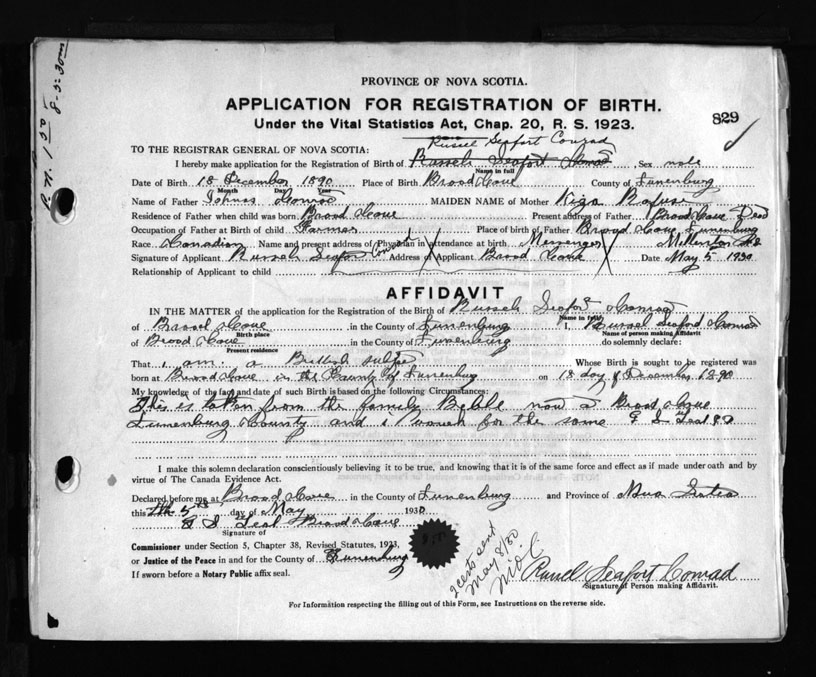 PROVINCE OF NOVA SCOTIA.
APPLICATION FOR REGISTRATION OF BIRTH.
829
Under the Vital Statistics Act, Chap. 20, R. S. 1923.
Russel Seafort Conrad
TO THE REGISTRAR GENERAL OF NOVA SCOTIA:
I hereby make application for the Registration of Birth of Russel Seafort Conrad, Sex male
Name in full
Date of Birth 18 December 1890 Place of Birth Broad Cove County of Lunenburg
Month Day Year
Name of Father Conrad MAIDEN NAME of Mother
Residence of Father when child was born Broad Cove Present address of Father Broad Cove Dead
Occupation of Father at Birth of child Farmer Place of birth of Father Broad Cove Lunenburg
Race Canadian Name and present address of Physician in attendance at birth
Signature of Applicant Russel Seafort Conrad Address of Applicant Broad Cove Date May 5 1930
Relationship of Applicant to child
AFFIDAVIT
IN THE MATTER of the application for the Registration of the Birth of Russel Seafort Conrad
Name in full
of Broad Cove in the County of Lunenburg I, Russel Seaford Conrad
Birth place Name of person making Affidavit
of Broad Cove in the County of Lunenburg do solemnly declare:
Present residence
That i am a British Whose Birth is sought to be registered was
born at Broad Cove in the County of Lunenburg on 18 day of December 1890
My knowledge of the fact and date of such Birth is based on the following Circumstances:
this is taken from the family Bible now a Broad Cove
Lunenburg County and i for the same
I make this solemn declaration conscientiously believing it to be true, and knowing that it is of the same force and effect as if made under oath and by
virtue of The Canada Evidence Act.
Declared before me at Broad Cove in the County of Lunenburg and Province of Nova Scotia
this 5th day of May 1930
Teal Broad Cove
Signature of
Commissioner under Section 5, Chapter 38, Revised Statutes, 1923,
or Justice of the Peace in and for the County of Lunenburg
If sworn before a Notary Public affix seal.
2 certs sent
May 8/30
Russel Seafort Conrad
Signature of Person making Affidavit.
For Information respecting the filling out of this Form, see Instructions on the reverse side.